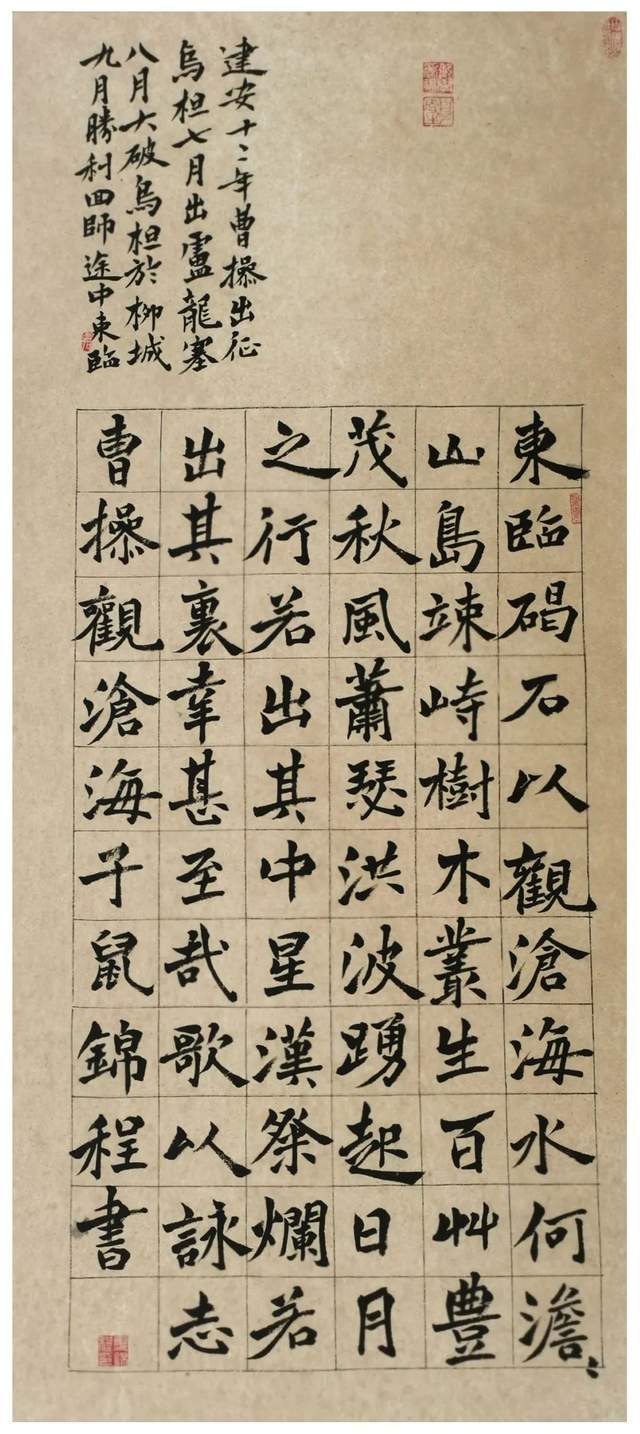 建安十二年曹操出征
烏桓七月出盧龍塞
八月大破烏桓於柳城
九月勝利回師途中東臨
東臨碣石以觀滄海水何澹〻
山島竦峙樹木叢生百艸豊
茂秋風蕭瑟洪波踴起日月
之行若出其中星漢祭爛若
出其裏幸甚至哉歌以詠志
曹操觀滄海子鼠錦程書